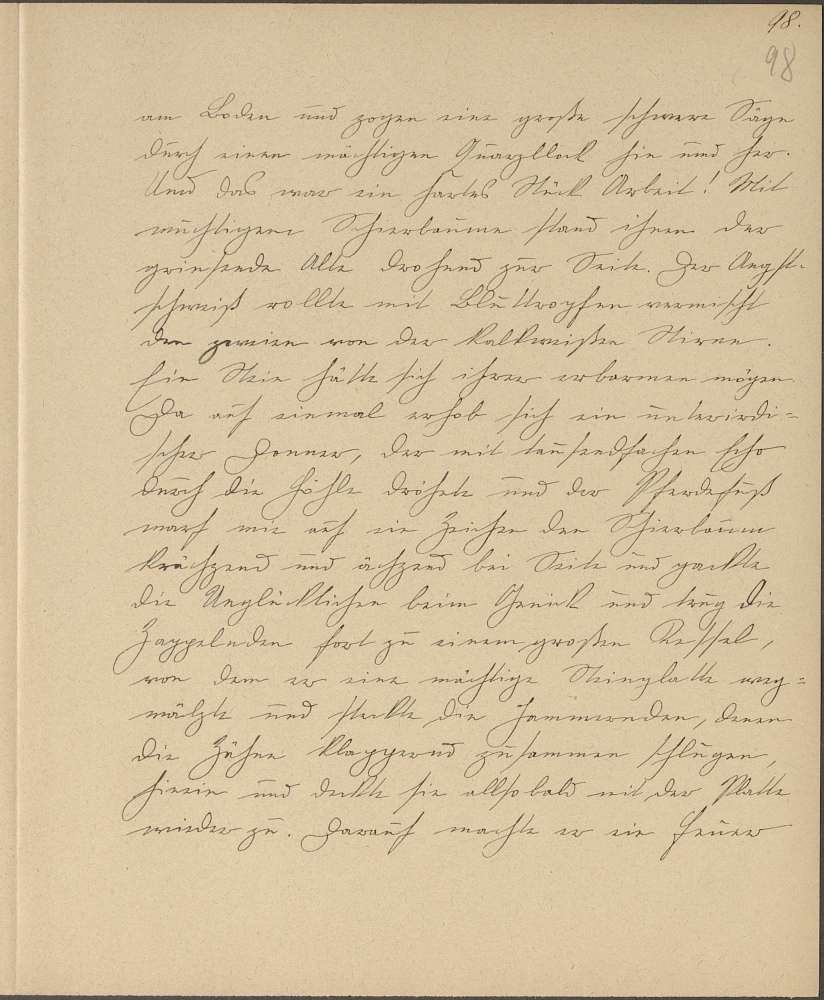 98.
98
am Boden und zogen eine große schwere Säge
durch einen mächtigen Quarzblock hin und her.
Und das war ein hartes Stück Arbeit! Mit
wuchtigem Schierbaume stand ihnen der
grinsende Alte drohend zur Seite. Der Angst-
schweiß rollte mit Bluttropfen vermischt
den zweien von der kalkweißen Stirne.
Ein Stein hätte sich ihrer erbarmen mögen
Da auf einmal erhob sich ein unterirdi=
scher Donner, der mit tausendfachen Echo
durch die Höhle dröhnte und der Pferdefuß
warf wie auf ein Zeichen den Schierbaum
krächzend und ächzend bei Seite und packte
die Unglücklichen beim Genick und trug die
Zappelnden fort zu einem großen Kessel,
von dem er eine mächtige Steinplatte weg=
wälzte und steckte die Jammernden, denen
die Zähne klappernd zusammen schlugen,
hinein und deckte sie allsobald mit der Platte
wieder zu. Darauf machte er ein Feuer